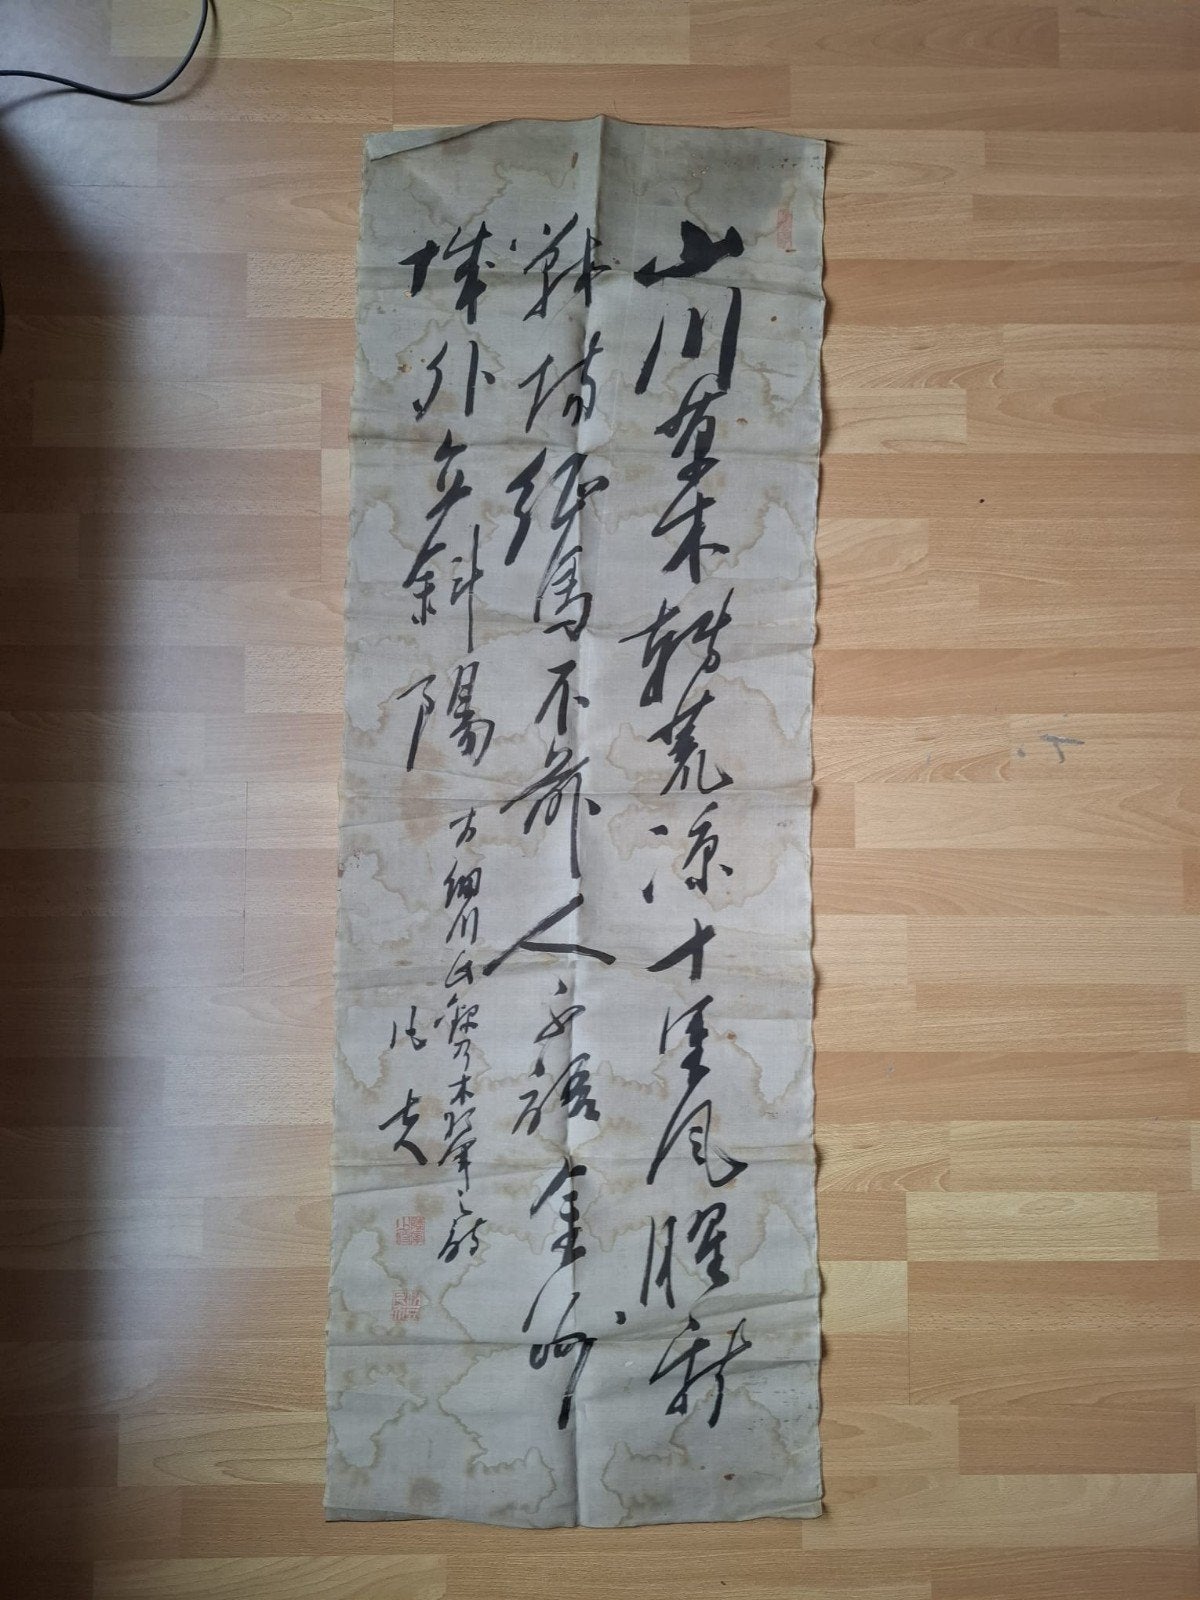 山川草木轉荒凉十里風腥新
戰場征馬不前人不語金州
城外立斜陽
細川氏錄乃木将軍之詩